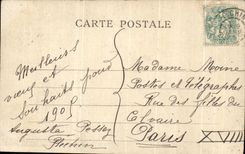 CARTE POSTALE
Meilleurs
vœux et
souhaits pour
1905
Augusta
Madame Moine
Postes et Télégraphes
Rue des filles du
Calvaire
Paris XVIII